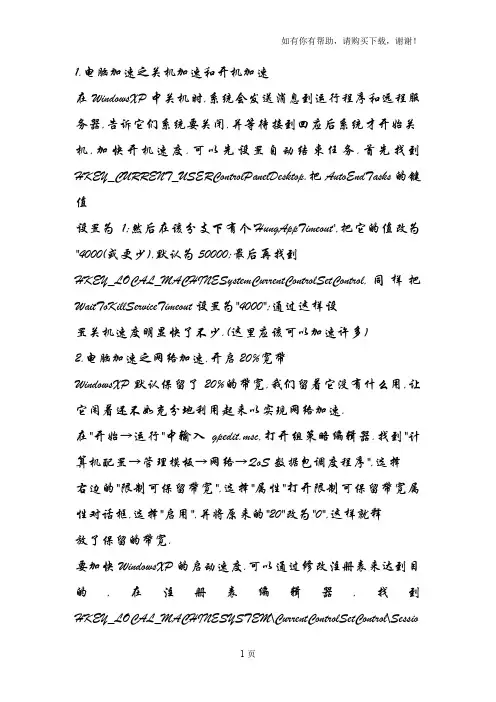 如有你有帮助，请购买下载，谢谢！
1.电脑加速之关机加速和开机加速
在WindowsXP中关机时,系统会发送消息到运行程序和远程服
务器,告诉它们系统要关闭,并等待接到回应后系统才开始关
机,加快开机速度,可以先设置自动结束任务,首先找到
HKEY_CURRENT_USERControlPanelDesktop,把AutoEndTasks的键
值
设置为1;然后在该分支下有个'HungAppTimeout',把它的值改为
"4000(或更少),默认为50000;最后再找到
HKEY_LOCAL_MACHINESystemCurrentControlSetControl,同样把
WaitToKillServiceTimeout设置为"4000";通过这样设
置关机速度明显快了不少.(这里应该可以加速许多)
2.电脑加速之网络加速,开启20%宽带
WindowsXP默认保留了20%的带宽,我们留着它没有什么用,让
它闲着还不如充分地利用起来以实现网络加速.
在"开始→运行"中输入gpedit.msc,打开组策略编辑器.找到"计
算机配置→管理模板→网络→QoS数据包调度程序",选择
右边的"限制可保留带宽",选择"属性"打开限制可保留带宽属
性对话框,选择"启用",并将原来的"20"改为"0",这样就释
放了保留的带宽.
要加快WindowsXP的启动速度.可以通过修改注册表来达到目
的,在注册表编辑器,找到
HKEY_LOCAL_MACHINESYSTEM\CurrentControlSetControl\Sessio
1页